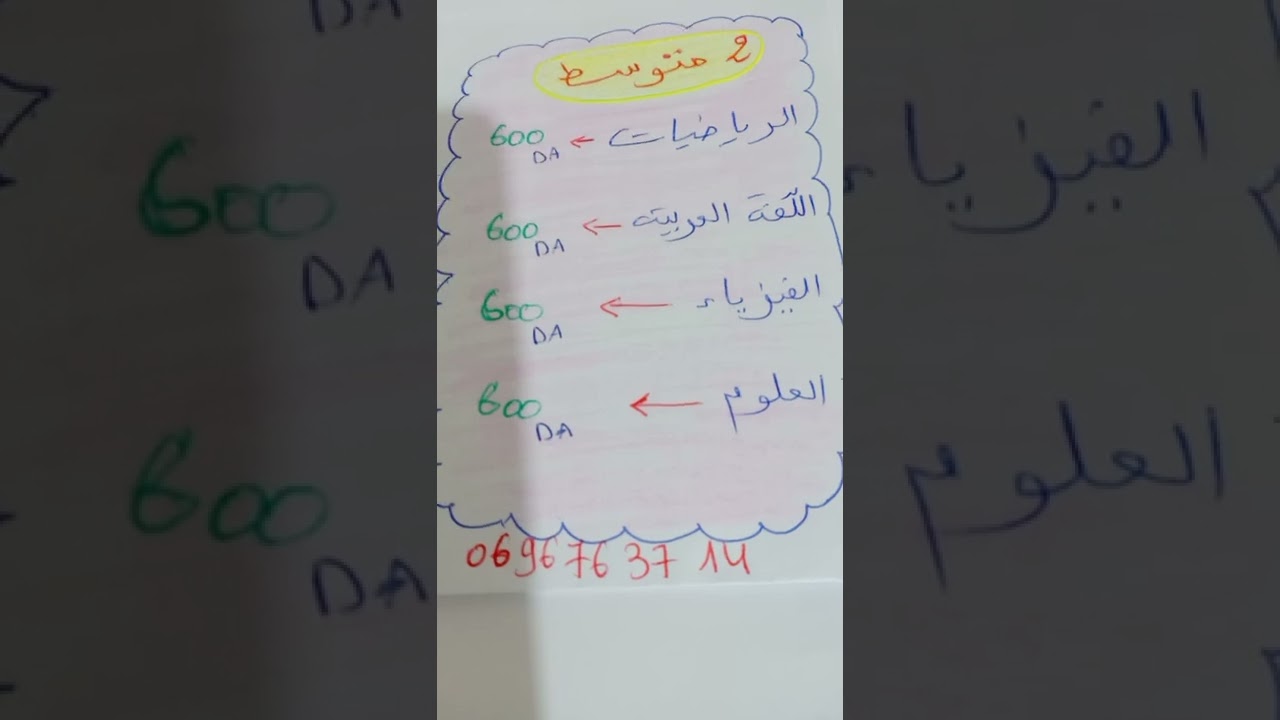 2 متوسط
الرياضيات ← 600 DA
اللّغة العربية ← 600 DA
الفيزياء ← 600 DA
العلوم ← 600 DA
06 96 76 37 14